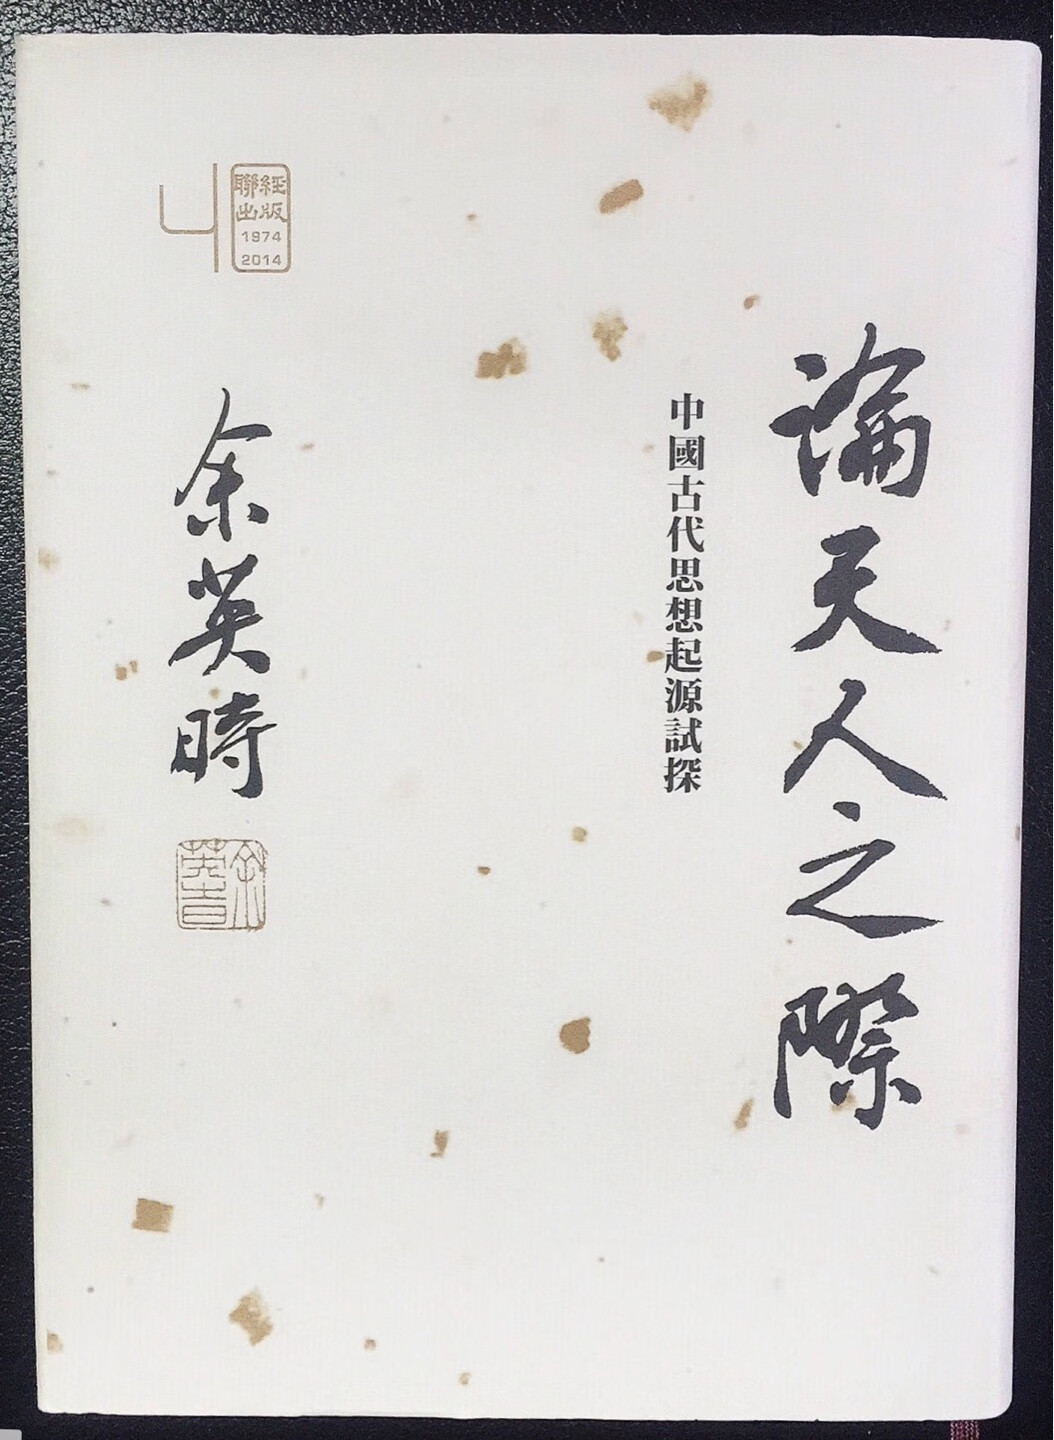 論天人之際
中國古代思想起源試探
聯經
出版
1974
2014
余英時
余英時